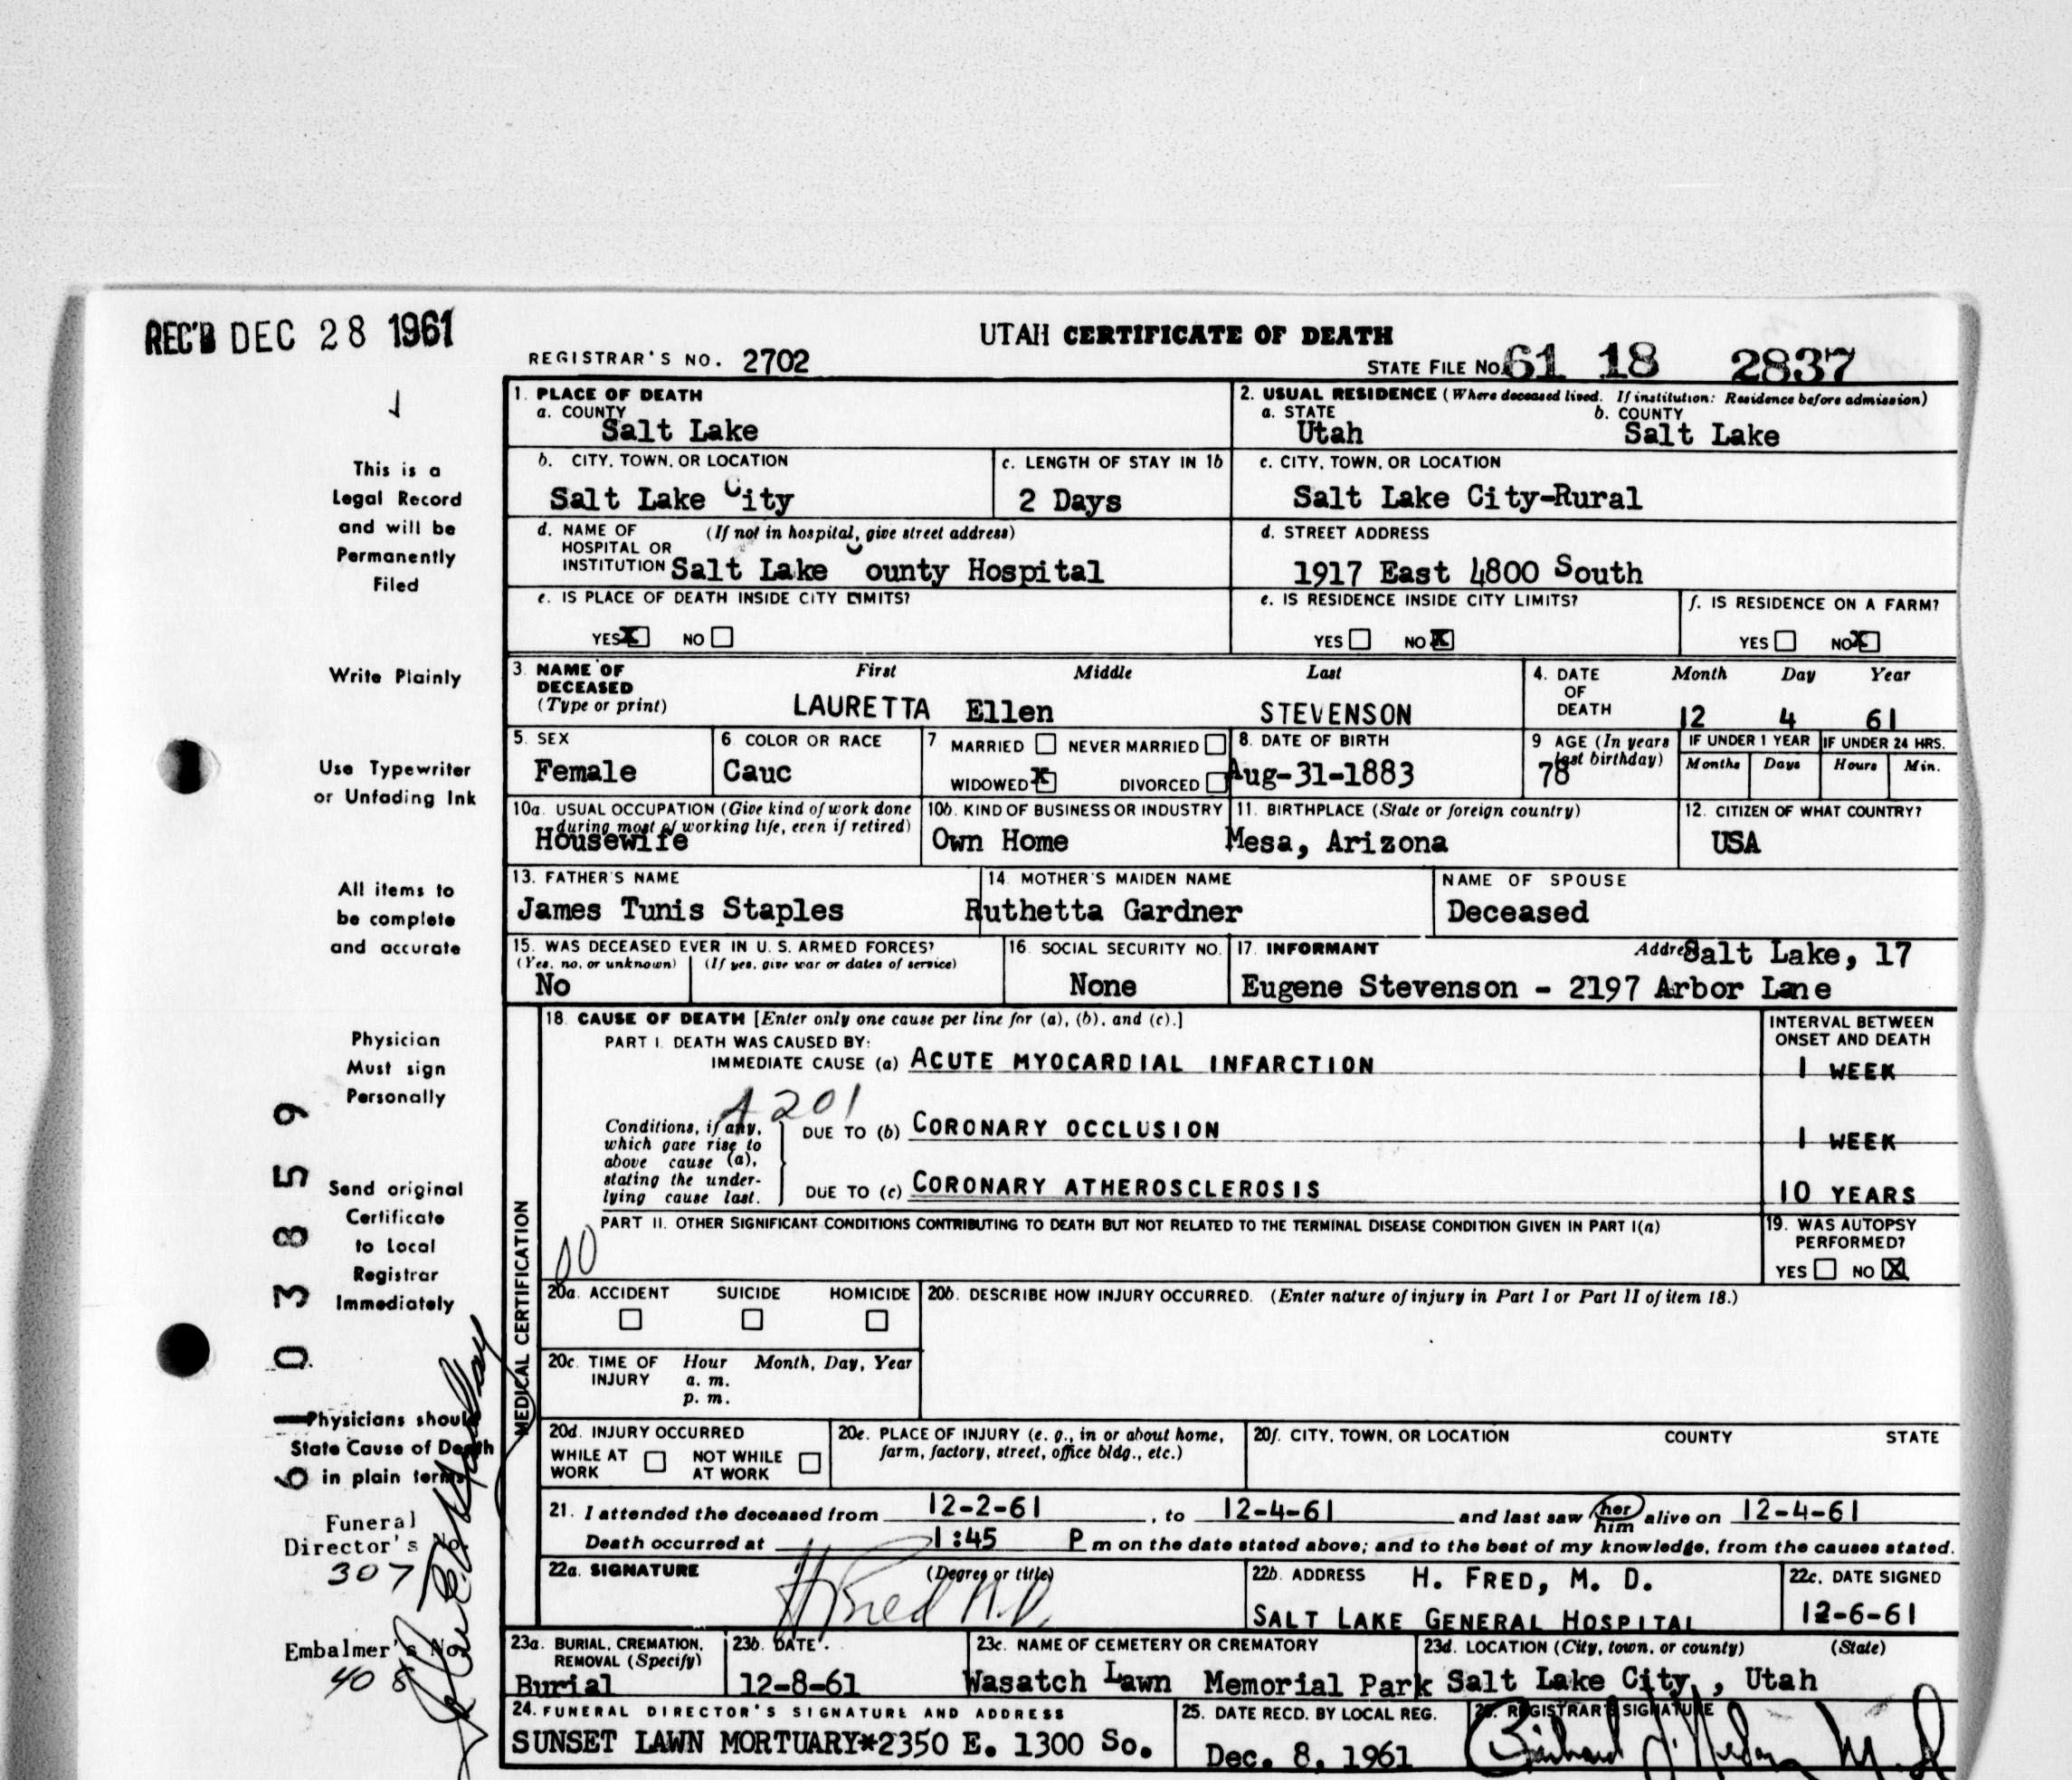 REC'D DEC 28 1961
UTAH CERTIFICATE OF DEATH
REGISTRAR'S NO. 2702
STATE FILE NO. 61 18 2837
This is a
Legal Record
and will be
Permanently
Filed
Write Plainly
Use Typewriter
or Unfading Ink
All items to
be complete
and accurate
Physician
Must sign
Personally
Send original
Certificate
to Local
Registrar
Immediately
Physicians should
State Cause of Death
in plain terms
Funeral
Director's
307
Embalmer's No
408
61 03859
1. PLACE OF DEATH
a. COUNTY
Salt Lake
2. USUAL RESIDENCE (Where deceased lived. If institution: Residence before admission)
a. STATE b. COUNTY
Utah Salt Lake
b. CITY, TOWN, OR LOCATION
Salt Lake City
c. LENGTH OF STAY IN 1b
2 Days
c. CITY, TOWN, OR LOCATION
Salt Lake City-Rural
d. NAME OF (If not in hospital, give street address)
HOSPITAL OR
INSTITUTION Salt Lake County Hospital
d. STREET ADDRESS
1917 East 4800 South
e. IS PLACE OF DEATH INSIDE CITY LIMITS?
YES X NO
e. IS RESIDENCE INSIDE CITY LIMITS?
YES NO X
f. IS RESIDENCE ON A FARM?
YES NO X
3. NAME OF First Middle Last
DECEASED
(Type or print) LAURETTA Ellen STEVENSON
4. DATE Month Day Year
OF
DEATH 12 4 61
5. SEX
Female
6. COLOR OR RACE
Cauc
7 MARRIED NEVER MARRIED
WIDOWED X DIVORCED
8. DATE OF BIRTH
Aug-31-1883
9 AGE (In years
last birthday)
78
IF UNDER 1 YEAR IF UNDER 24 HRS.
Months Days Hours Min.
10a. USUAL OCCUPATION (Give kind of work done
during most of working life, even if retired)
Housewife
10b. KIND OF BUSINESS OR INDUSTRY
Own Home
11. BIRTHPLACE (State or foreign country)
Mesa, Arizona
12. CITIZEN OF WHAT COUNTRY?
USA
13. FATHER'S NAME
James Tunis Staples
14. MOTHER'S MAIDEN NAME
Ruthetta Gardner
NAME OF SPOUSE
Deceased
15. WAS DECEASED EVER IN U. S. ARMED FORCES?
(Yes, no, or unknown) (If yes, give war or dates of service)
No
16. SOCIAL SECURITY NO.
None
17. INFORMANT Address Salt Lake, 17
Eugene Stevenson - 2197 Arbor Lane
MEDICAL CERTIFICATION
18. CAUSE OF DEATH [Enter only one cause per line for (a), (b), and (c).]
PART I. DEATH WAS CAUSED BY:
IMMEDIATE CAUSE (a) ACUTE MYOCARDIAL INFARCTION
INTERVAL BETWEEN
ONSET AND DEATH
1 WEEK
4201
Conditions, if any,
which gave rise to
above cause (a),
stating the under-
lying cause last.
DUE TO (b) CORONARY OCCLUSION
1 WEEK
DUE TO (c) CORONARY ATHEROSCLEROSIS
10 YEARS
PART II. OTHER SIGNIFICANT CONDITIONS CONTRIBUTING TO DEATH BUT NOT RELATED TO THE TERMINAL DISEASE CONDITION GIVEN IN PART I(a)
00
19. WAS AUTOPSY
PERFORMED?
YES NO X
20a. ACCIDENT SUICIDE HOMICIDE
20b. DESCRIBE HOW INJURY OCCURRED. (Enter nature of injury in Part I or Part II of item 18.)
20c. TIME OF Hour Month, Day, Year
INJURY a. m.
p. m.
20d. INJURY OCCURRED
WHILE AT NOT WHILE
WORK AT WORK
20e. PLACE OF INJURY (e. g., in or about home,
farm, factory, street, office bldg., etc.)
20f. CITY, TOWN, OR LOCATION COUNTY STATE
21. I attended the deceased from 12-2-61, to 12-4-61 and last saw her him alive on 12-4-61
Death occurred at 1:45 P m on the date stated above; and to the best of my knowledge, from the causes stated.
22a. SIGNATURE (Degree or title)
H Fred M.D.
22b. ADDRESS H. FRED, M. D.
SALT LAKE GENERAL HOSPITAL
22c. DATE SIGNED
12-6-61
23a. BURIAL, CREMATION,
REMOVAL (Specify)
Burial
23b. DATE
12-8-61
23c. NAME OF CEMETERY OR CREMATORY
Wasatch Lawn Memorial Park
23d. LOCATION (City, town, or county) (State)
Salt Lake City, Utah
24. FUNERAL DIRECTOR'S SIGNATURE AND ADDRESS
SUNSET LAWN MORTUARY*2350 E. 1300 So.
25. DATE RECD. BY LOCAL REG.
Dec. 8, 1961
26. REGISTRAR'S SIGNATURE